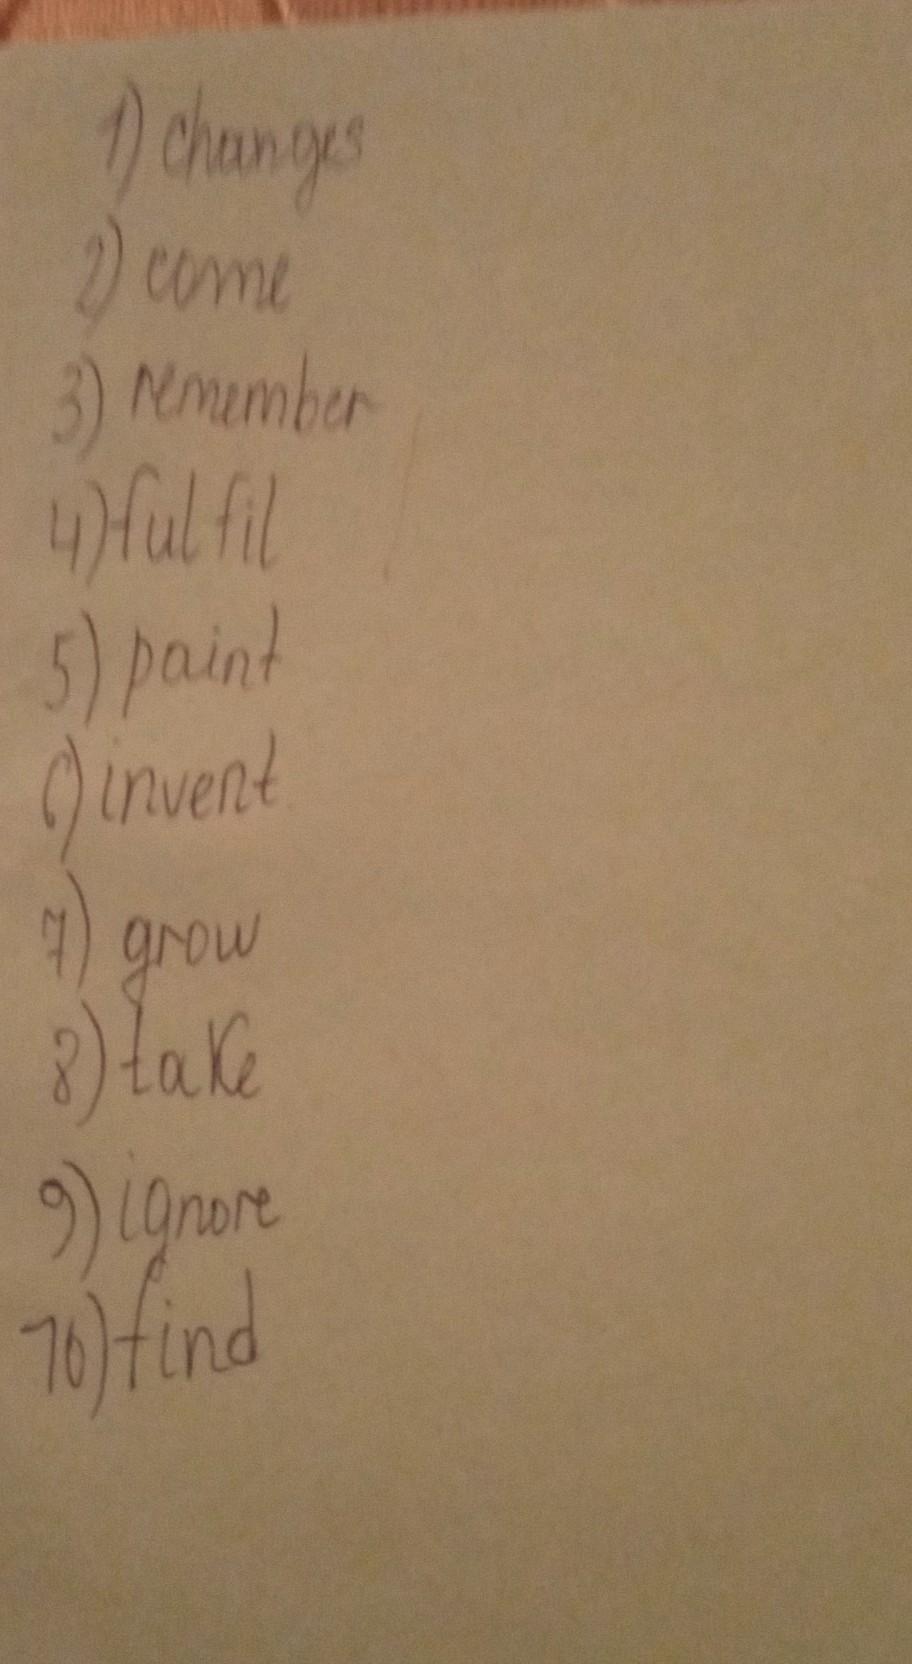 1) changes
2) come
3) remember
4) fulfil
5) paint
6) invent
7) grow
8) take
9) ignore
10) find